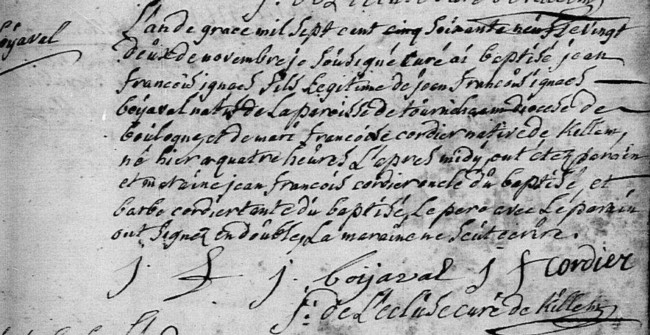 boijavel
L'an de grace mil sept cent cinq soixante neuf le vingt
deux de novembre je soussigné curé ai baptisé jean
francois ignace fils legitime de jean francois ignace
boijaval natif de la paroisse de diocese de
boulogne, et de marie francoise cordier native de Killem,
né hier a quatre heures L'apres midy, ont été parain
et maraine jean francois cordier oncle du baptisé, et
barbe cordier tante du baptisé, Le pere avec Le parain
ont signez en double, La maraine ne sceut ecrire.
j. f. j. boijaval j f cordier
f. de L'ecluse curé de Killem